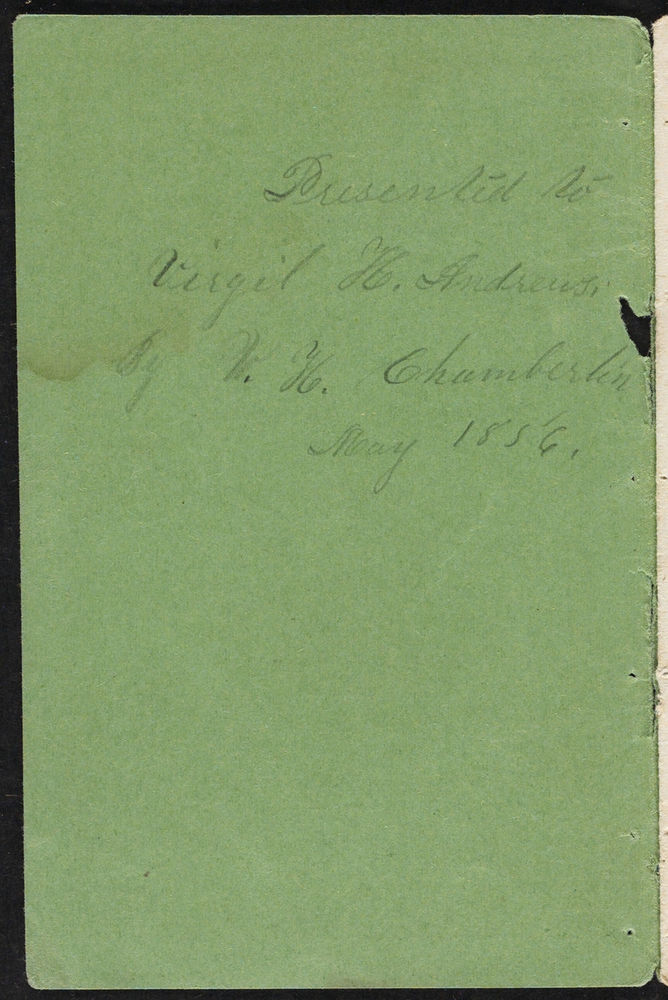 Presented to
Virgil H. Andrews,
By V. H. Chamberlin
May 1856.